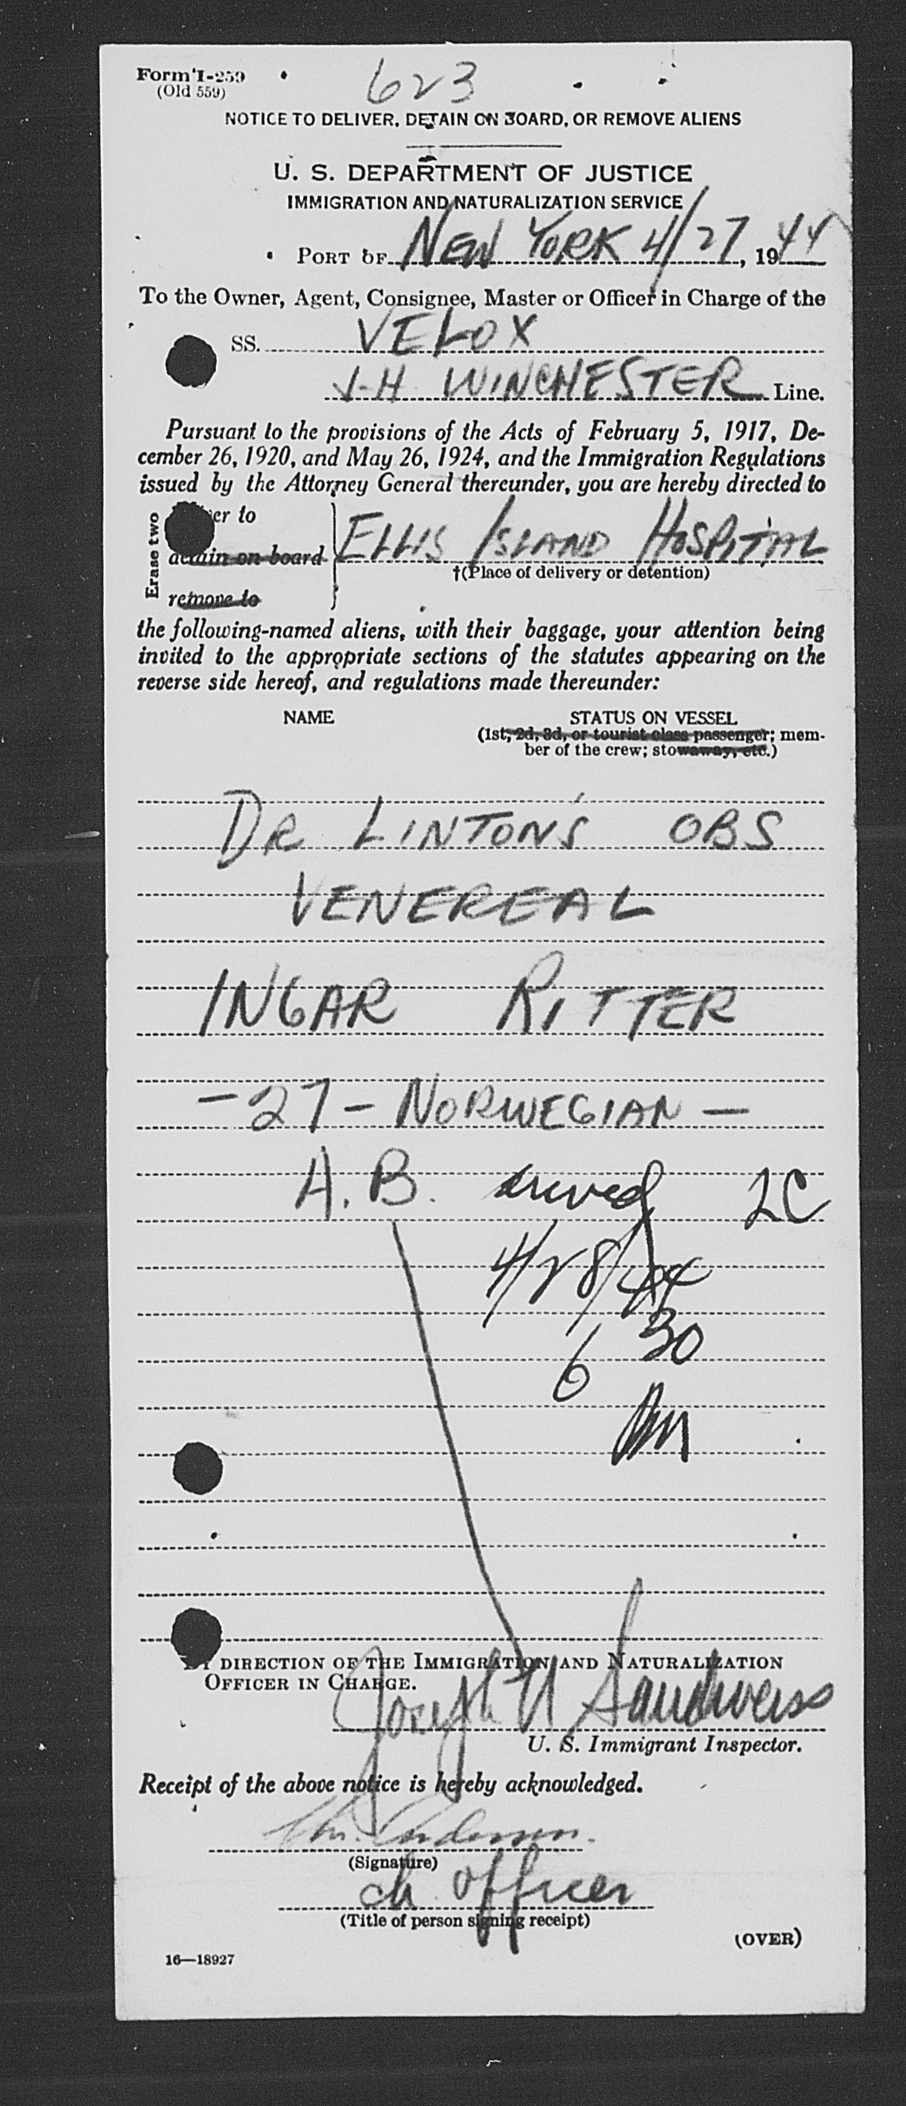 Form I-259
(Old 559)
623
NOTICE TO DELIVER, DETAIN ON BOARD, OR REMOVE ALIENS
U. S. DEPARTMENT OF JUSTICE
IMMIGRATION AND NATURALIZATION SERVICE
PORT OF NEW YORK 4/27, 1944
To the Owner, Agent, Consignee, Master or Officer in Charge of the
SS. VELOX
J-H WINCHESTER Line.
Pursuant to the provisions of the Acts of February 5, 1917, De-
cember 26, 1920, and May 26, 1924, and the Immigration Regulations
issued by the Attorney General thereunder, you are hereby directed to
Erase two
er to
detain on board
remove to
ELLIS ISLAND HOSPITAL
†(Place of delivery or detention)
the following-named aliens, with their baggage, your attention being
invited to the appropriate sections of the statutes appearing on the
reverse side hereof, and regulations made thereunder:
NAME STATUS ON VESSEL
(1st, 2d, 3d, or tourist class passenger; mem-
ber of the crew; stowaway, etc.)
DR LINTON'S OBS
VENEREAL
INGAR RITTER
-27- NORWEGIAN -
A.B. arrived 2C
4/28/44
6 30
BY DIRECTION OF THE IMMIGRATION AND NATURALIZATION
OFFICER IN CHARGE.
Joseph N Sandweiss
U. S. Immigrant Inspector.
Receipt of the above notice is hereby acknowledged.
Andersen.
(Signature)
ch officer
(Title of person signing receipt)
(OVER)
16—18927